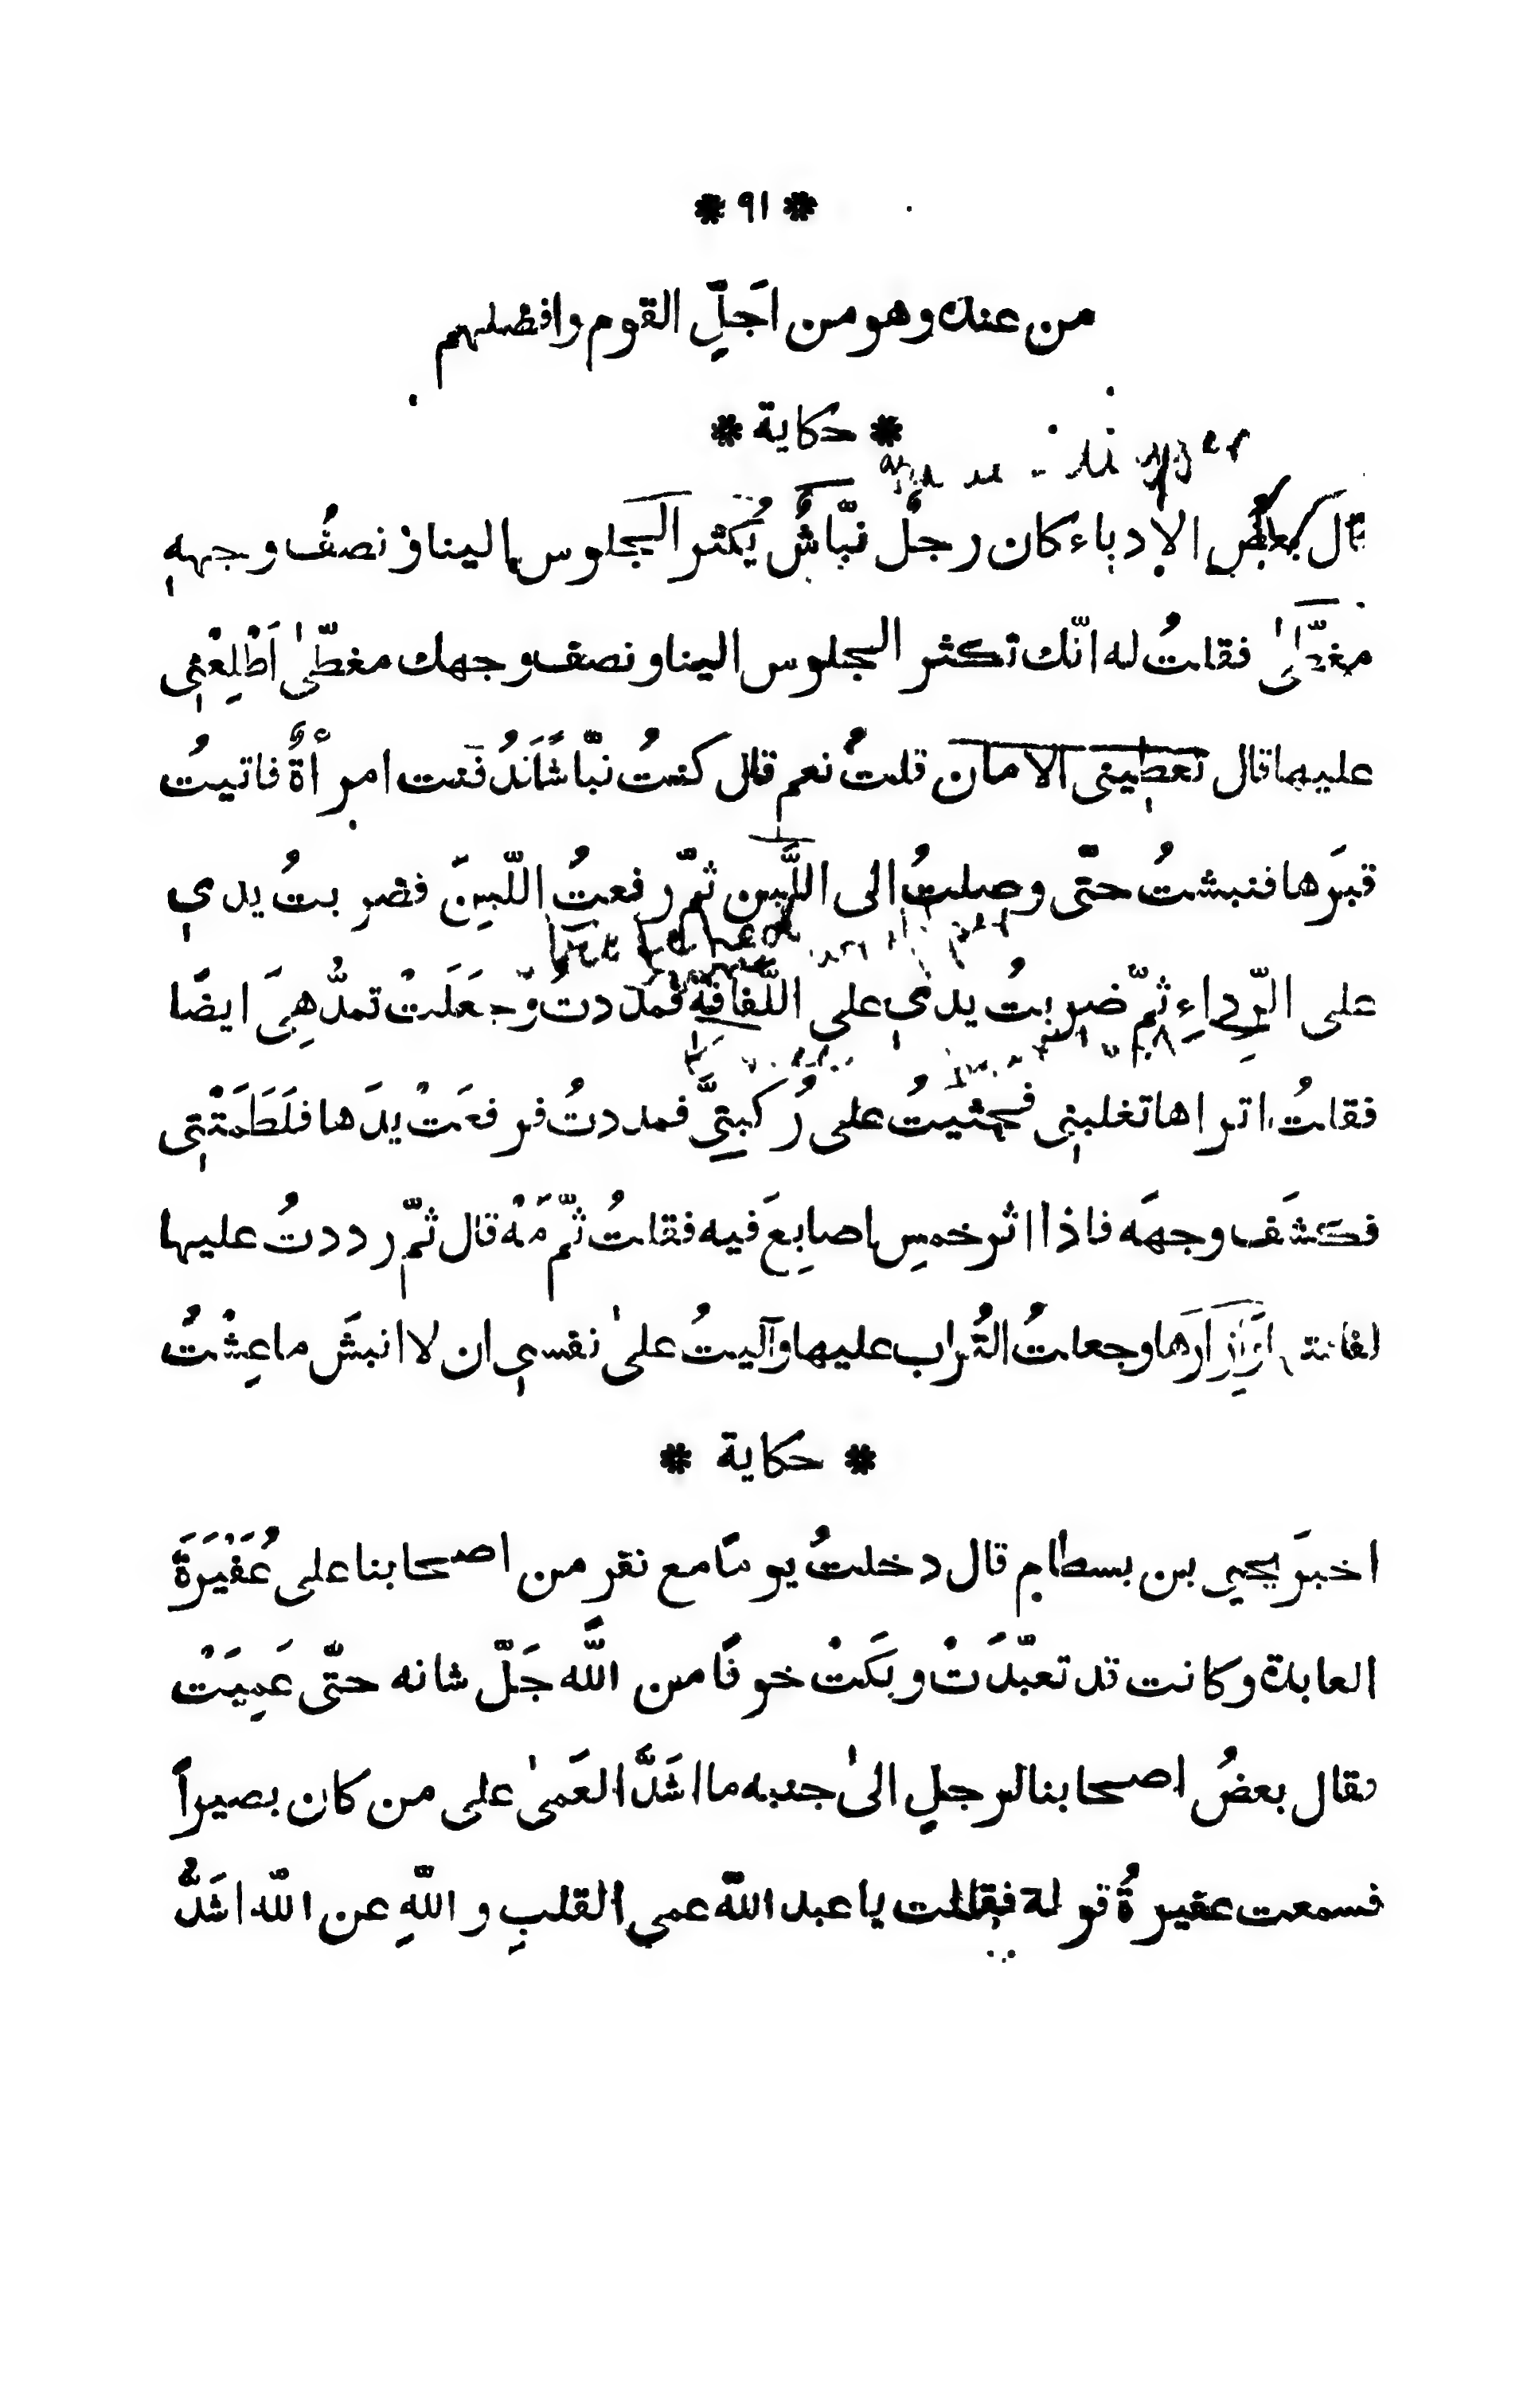 * ٩١ *
من عنده وهو من اَجَلِّ القوم وافضلهم
* حكاية *
قال بعضُ الادباء كان رجلٌ نبّاشٌ يُكثر الجلوس الينا و نصفُ وجههِ
مغطّىٰ فقلتُ له انّك تكثر الجلوس الينا ونصف وجهك مغطّىٰ اَطْلِعْنِى
عليها قال تعطينى الامان قلتُ نعم قال كنتُ نبّاشًا فَدُفنت امرأةٌ فاتيتُ
قبرَها فنبشتُ حتّى وصلتُ الى اللَّبِن ثمّ رفعتُ اللّبِنَ فضربتُ يدى
على الرِّداءِ ثمّ ضربتُ يدى على اللّفافة فمددتُ وّجعَلَتْ تمدُّ هِىَ ايضًا
فقلتُ اتراها تغلبنى فجثيتُ على رُكبتِىَّ فمددتُ فرفعَتْ يدَها فلَطَمَتْنِى
فكشَف وجهَه فاذا اثر خمسِ اصابِعَ فيه فقلتُ ثمّ مَهْ قال ثمّ رددتُ عليها
لفافتها وَاِزارَها وجعلتُ التُّراب عليها وآليتُ علىٰ نفسى ان لا انبشَ ما عِشْتُ
* حكاية *
اخبرَ يحيى بن بسطام قال دخلتُ يومًا مع نفر من اصحابنا على عُفَيْرَةَ
العابدة وكانت قد تعبّدَتْ وبكَتْ خوفًا من اللّٰه جَلّ شانه حتّى عَمِيَتْ
فقال بعضُ اصحابنا لرجلٍ الىٰ جنبه ما اشَدَّ العَمىٰ على من كان بصيراً
فسمعت عفيرةُ قوله فقالت يا عبد اللّٰه عمى القلبِ و اللّٰهِ عن اللّٰه اشَدُّ